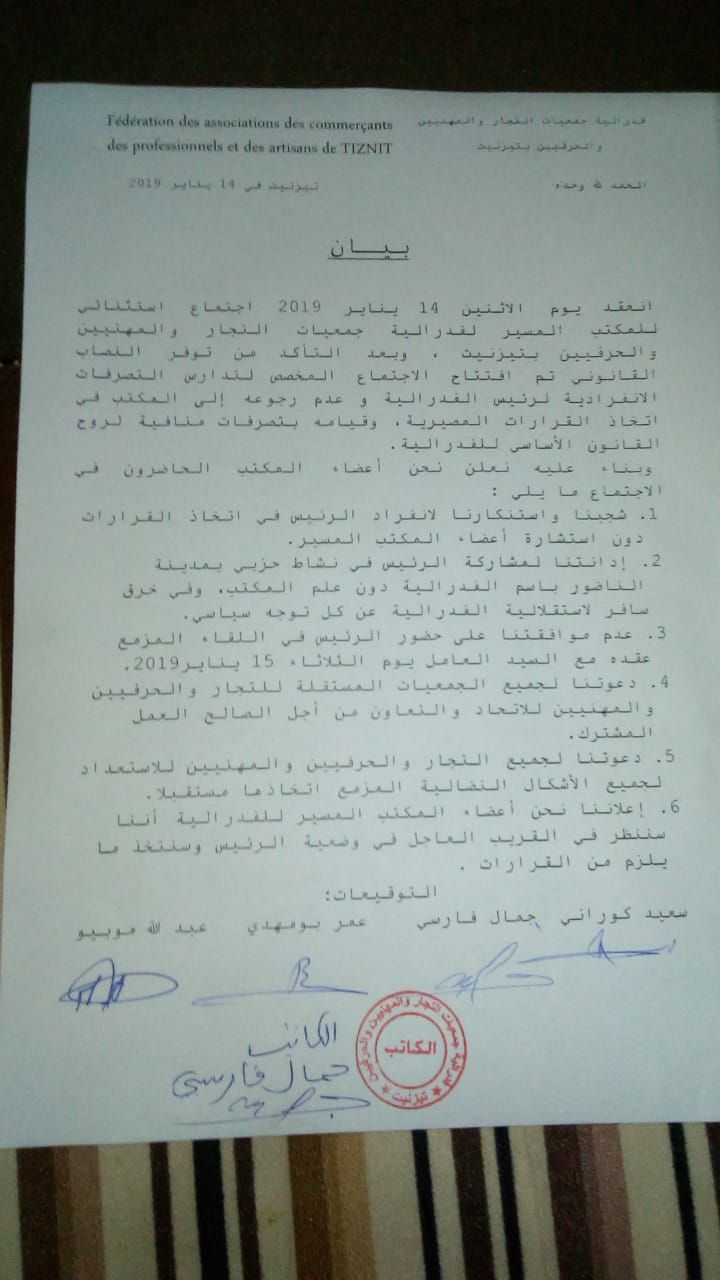 Fédération des associations des commerçants
des professionnels et des artisans de TIZNIT
فدرالية جمعيات التجار والمهنيين
والحرفيين بتيزنيت
الحمد لله وحده
تيزنيت في 14 يناير 2019
بيــــان
انعقد يوم الاثنين 14 يناير 2019 اجتماع استثنائي
للمكتب المسير لفدرالية جمعيات التجار والمهنيين
والحرفيين بتيزنيت ، وبعد التأكد من توفر النصاب
القانوني تم افتتاح الاجتماع المخصص لتدارس التصرفات
الانفرادية لرئيس الفدرالية و عدم رجوعه إلى المكتب في
اتخاذ القرارات المصيرية، وقيامه بتصرفات منافية لروح
القانون الأساسي للفدرالية.
وبناء عليه نعلن نحن أعضاء المكتب الحاضرون في
الاجتماع ما يلي :
1. شجبنا واستنكارنا لانفراد الرئيس في اتخاذ القرارات
دون استشارة أعضاء المكتب المسير.
2. إدانتنا لمشاركة الرئيس في نشاط حزبي بمدينة
الناضور باسم الفدرالية دون علم المكتب، وفي خرق
سافر لاستقلالية الفدرالية عن كل توجه سياسي.
3. عدم موافقتنا على حضور الرئيس في اللقاء المزمع
عقده مع السيد العامل يوم الثلاثاء 15 يناير2019.
4. دعوتنا لجميع الجمعيات المستقلة للتجار والحرفيين
والمهنيين للاتحاد والتعاون من أجل الصالح العمل
المشترك.
5. دعوتنا لجميع التجار والحرفيين والمهنيين للاستعداد
لجميع الأشكال النضالية المزمع اتخاذها مستقبلا.
6. إعلاننا نحن أعضاء المكتب المسير للفدرالية أننا
سننظر في القريب العاجل في وضعية الرئيس وسنتخذ ما
يلزم من القرارات .
التوقيعات:
سعيد كوراني جمال فارسي عمر بومهدي عبد الله موبيو
فدرالية جمعيات التجار والمهنيين والحرفيين
الكاتب
تيزنيت
الكاتب
جمال فارسي